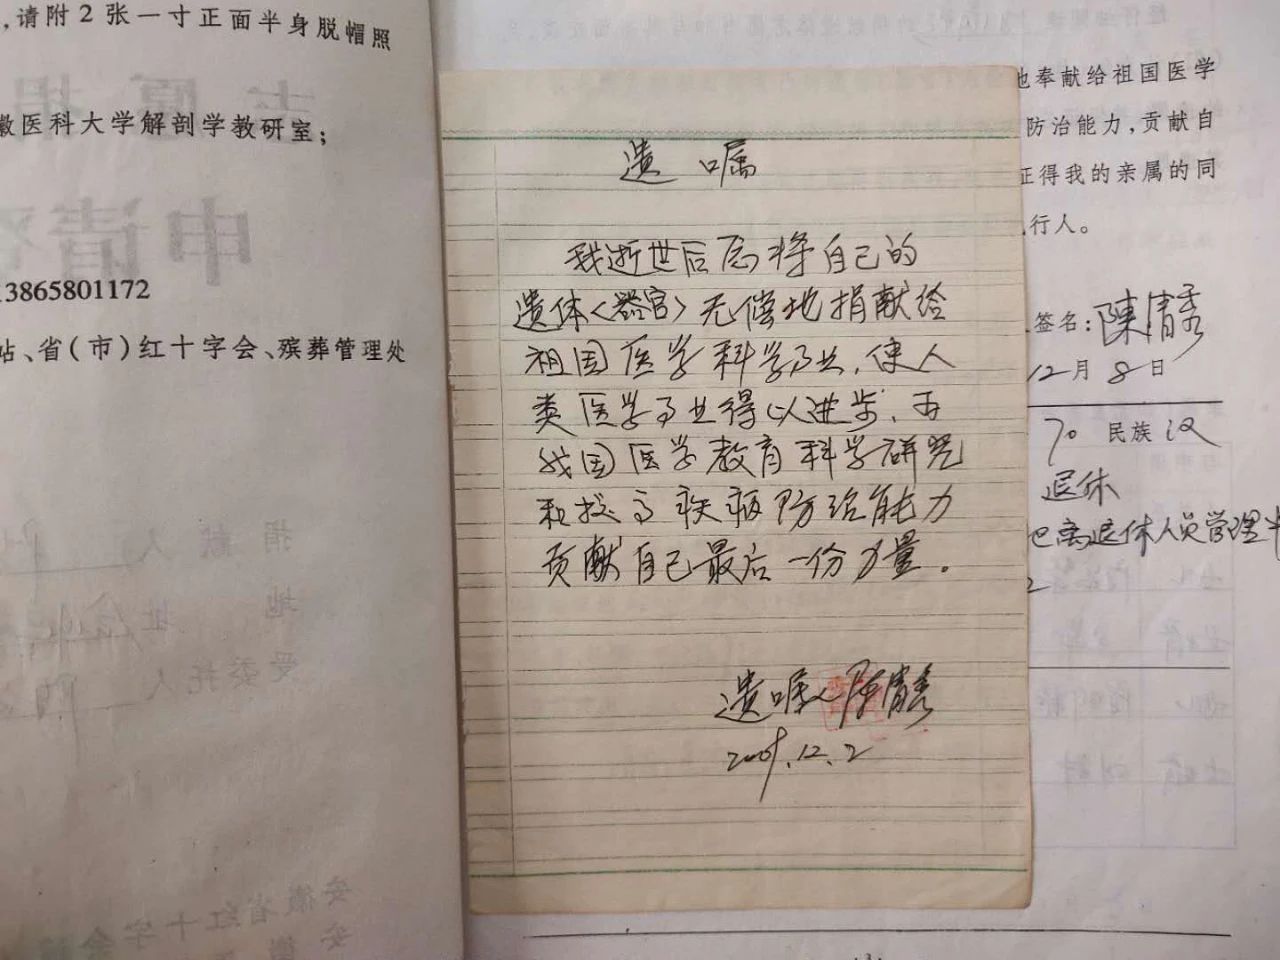 ,请附2张一寸正面半身脱帽照
徽医科大学解剖学教研室;
13865801172
站、省(市)红十字会、殡葬管理处
遗嘱
我逝世后愿将自己的
遗体〈器官〉无偿地捐献给
祖国医学科学事业,使人
类医学事业得以进步,为
我国医学教育科学研究
和提高疾病防治能力
贡献自己最后一份力量。
遗嘱人陈清秀
12.2
地奉献给祖国医学
防治能力,贡献自
征得我的亲属的同
行人。
签名:陳清秀
12月8日
70 民族 汉
退休
离退休人员管理